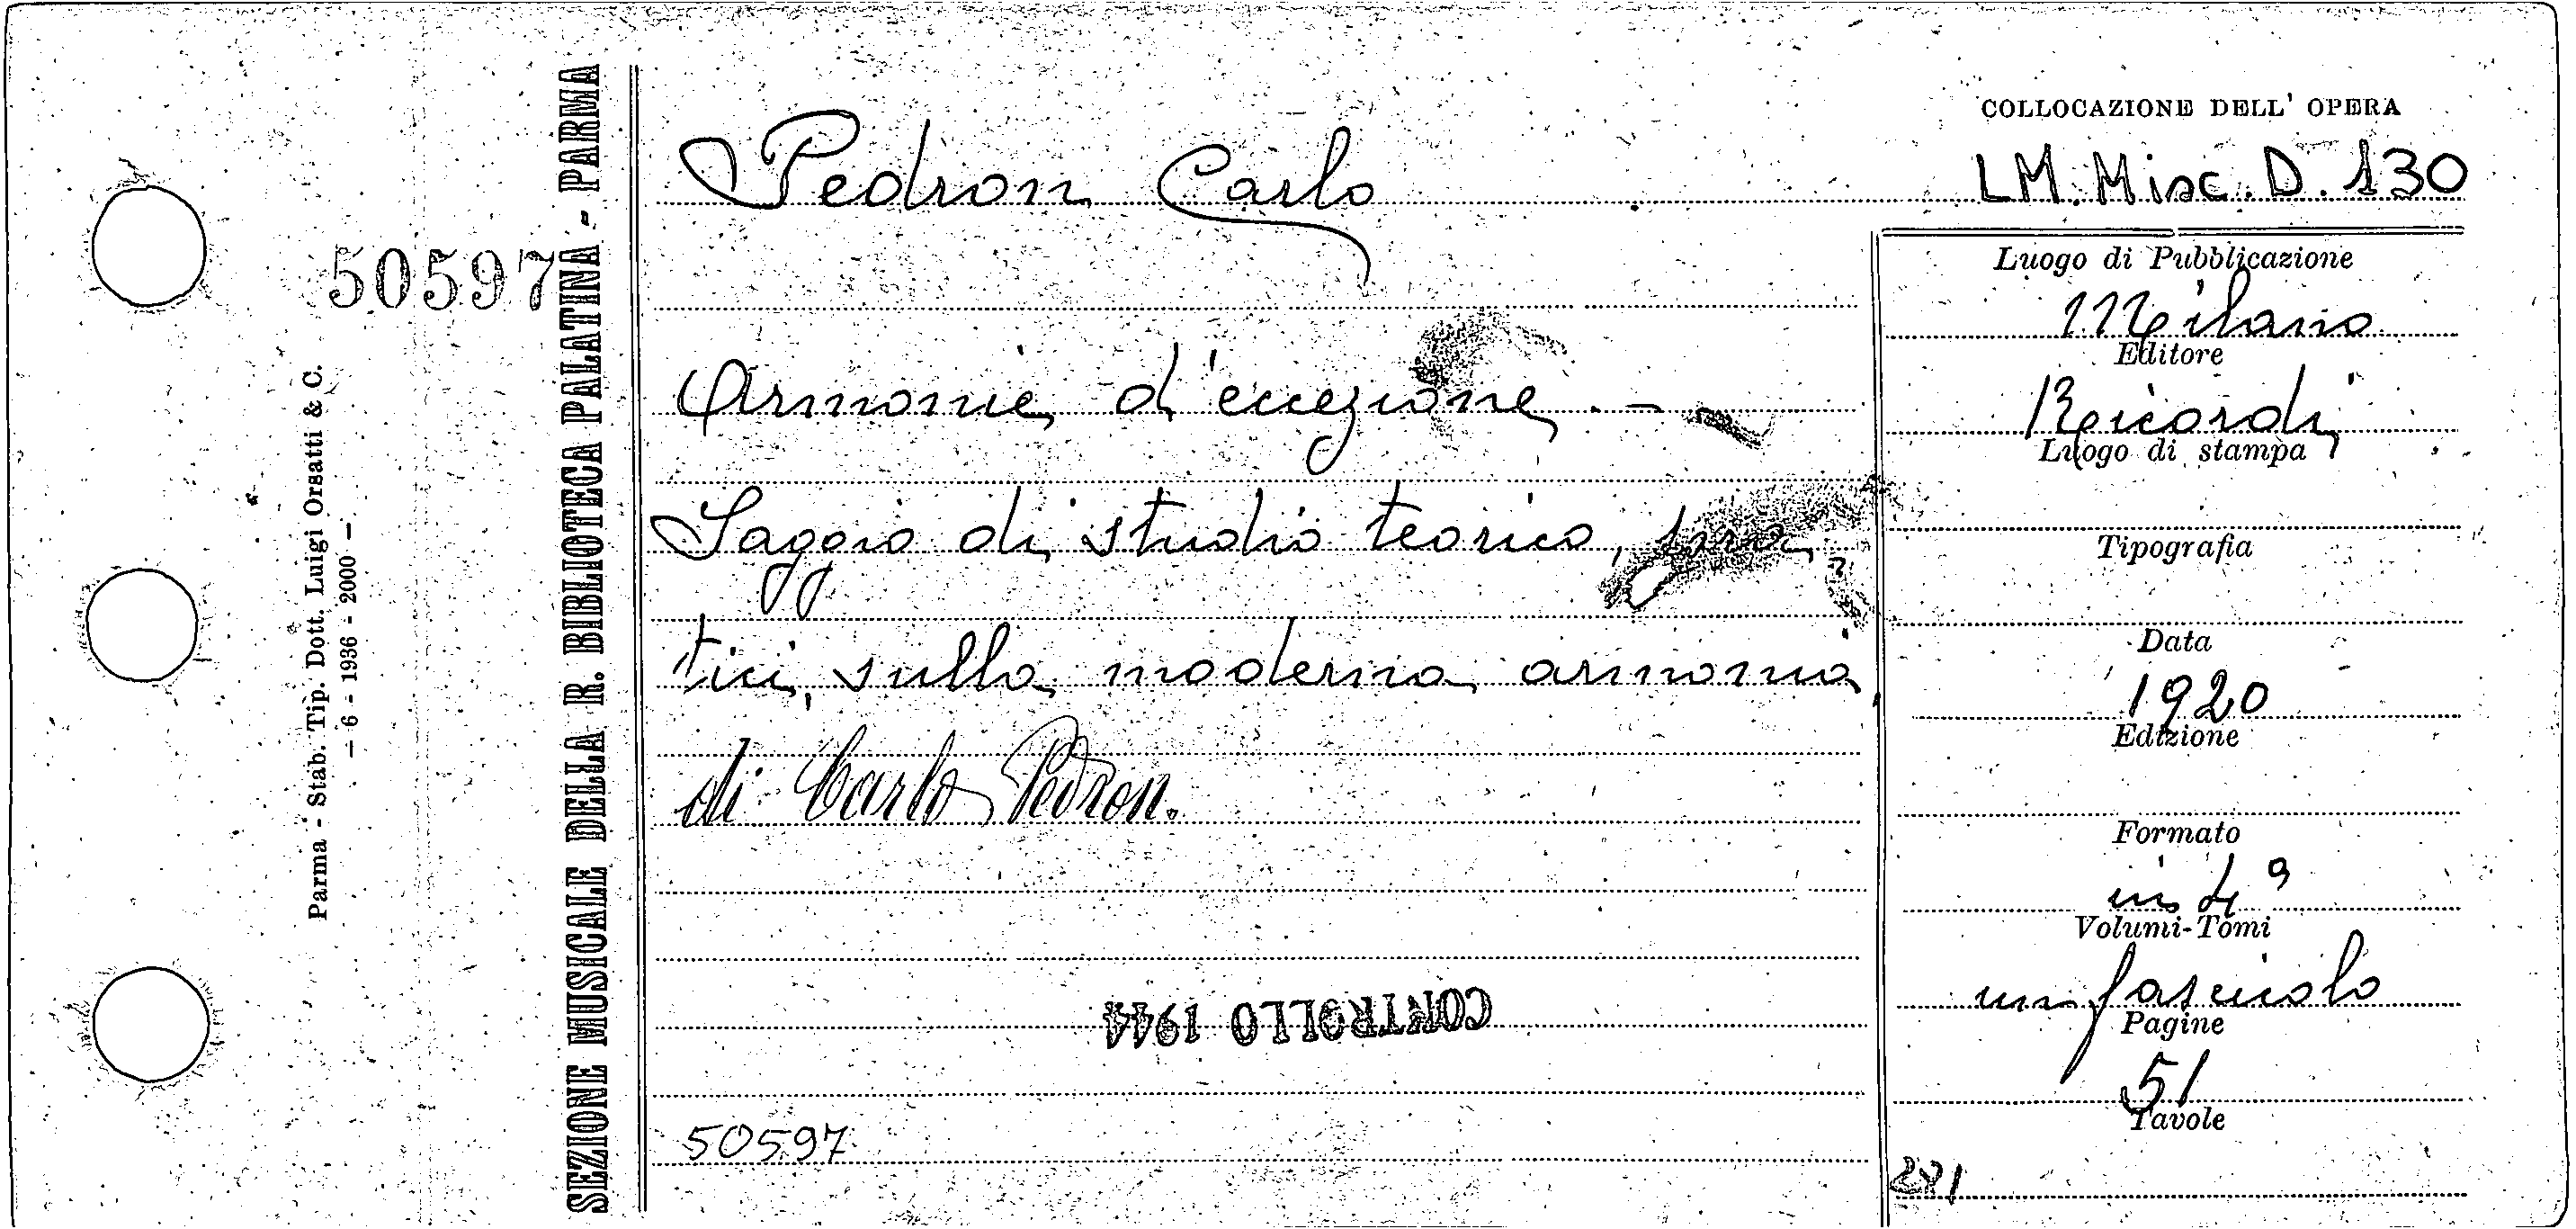 Parma - Stab. Tip. Dott. Luigi Orsatti & C.
- 6 - 1936 - 2000 -
50597
SEZIONE MUSICALE DELLA R. BIBLIOTECA PALATINA - PARMA
Pedron Carlo
Armonie d'eccezione. -
Saggio di studio teorico, pra
tici, sulla moderna armonia,
di Carlo Pedron.
CONTROLLO 1944
50597
COLLOCAZIONE DELL' OPERA
LM. Misc. D. 130
Luogo di Pubblicazione
Milano
Editore
Ricordi
Luogo di stampa
Tipografia
Data
1920
Edizione
Formato
in 4º
Volumi-Tomi
un fascicolo
Pagine
51
Tavole